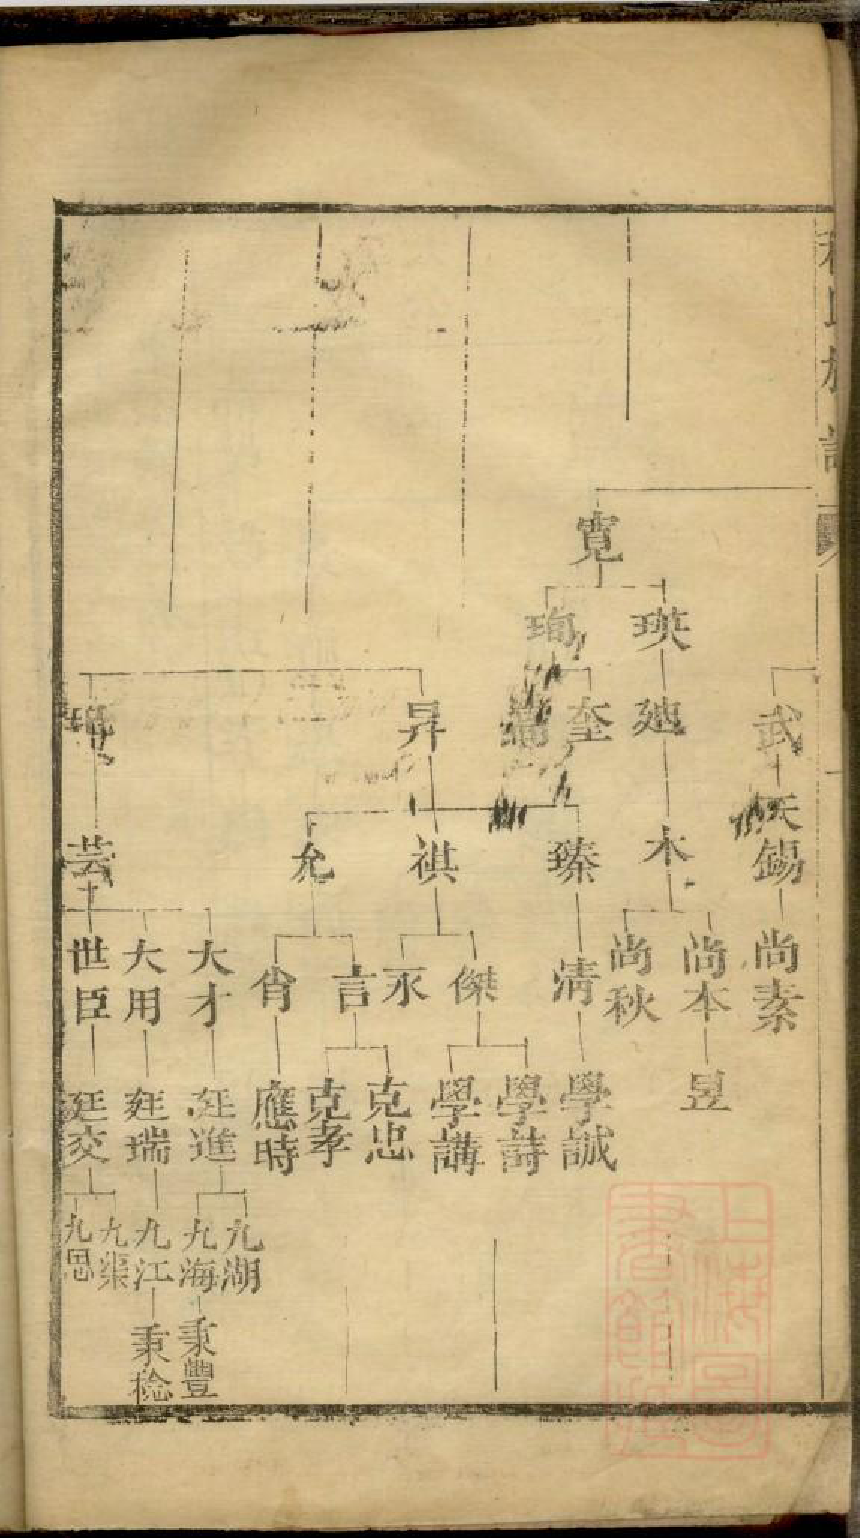 寛
瑛
珣
武
廸
奎
昇
天錫
木
臻
祺
允
芸
尚素
尚本
尚秋
清
傑
永
言
肖
大才
大用
世臣
昱
學誠
學詩
學講
克忠
克孝
應時
廷進
廷瑞
廷交
九湖
九海
九江
九渠
九思
秉豐
秉稔
上海圖書館藏